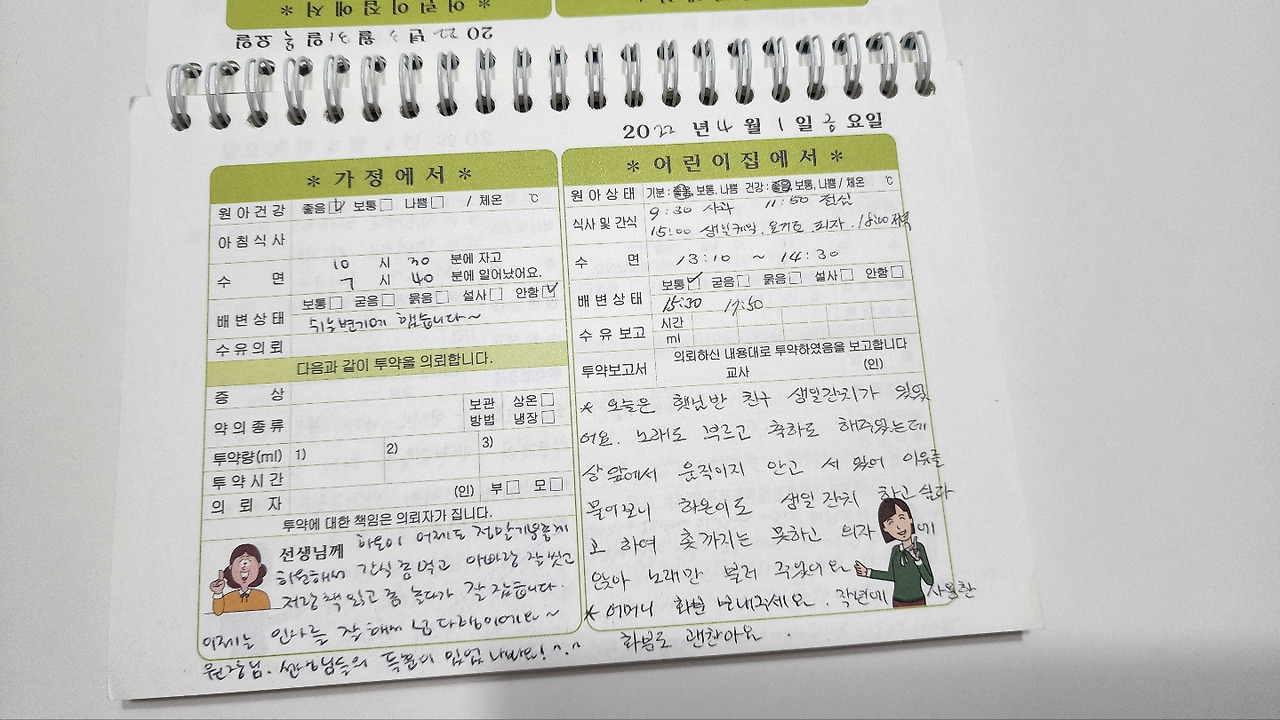 * 어린이집에서 *
2022년 3월 31일 목요일
2022년 4월 1일 금요일
* 가정에서 *
원아건강 좋음 보통 나쁨 / 체온 ℃
아침식사
수면 10시 30분에 자고
7시 40분에 일어났어요.
배변상태 보통 굳음 묽음 설사 안함
쉬는변기에 했습니다~
수유의뢰
다음과 같이 투약을 의뢰합니다.
증상
약의종류 보관방법 상온 냉장
투약량(ml) 1) 2) 3)
투약시간
의뢰자 (인) 부 모
투약에 대한 책임은 의뢰자가 집니다.
선생님께 하온이 어제도 정말
하원해서 간식 좀 먹고 아빠랑 잘 씻고
저랑 책 읽고 좀 놀다가 잘 잤습니다.
이제는 인사를 잘 해서 넘 다행이에요~
원장님, 선생님들의
* 어린이집에서 *
원아상태 기분 : 좋음, 보통, 나쁨 건강 : 좋음, 보통, 나쁨 / 체온 ℃
식사 및 간식 9:30 사과 11:50 점심
15:00 생일케익, 요거트, 피자, 18:00 저녁
수면 13:10 ~ 14:30
배변상태 보통 굳음 묽음 설사 안함
15:30 17:50
수유보고 시간
ml
투약보고서 의뢰하신 내용대로 투약하였음을 보고합니다
교사 (인)
* 오늘은 햇님반 친구 생일잔치가 있었
어요. 노래도 부르고 축하도 해주었는데
상 앞에서 움직이지 안고 서 있어 이유를
물어보니 하온이도 생일잔치 하고 싶다
고 하여 촛까지는 못하고 의자에
앉아 노래만 불러 주었어요
* 어머니 화분 보내주세요. 작년에 사용한
화분도 괜찬아요.